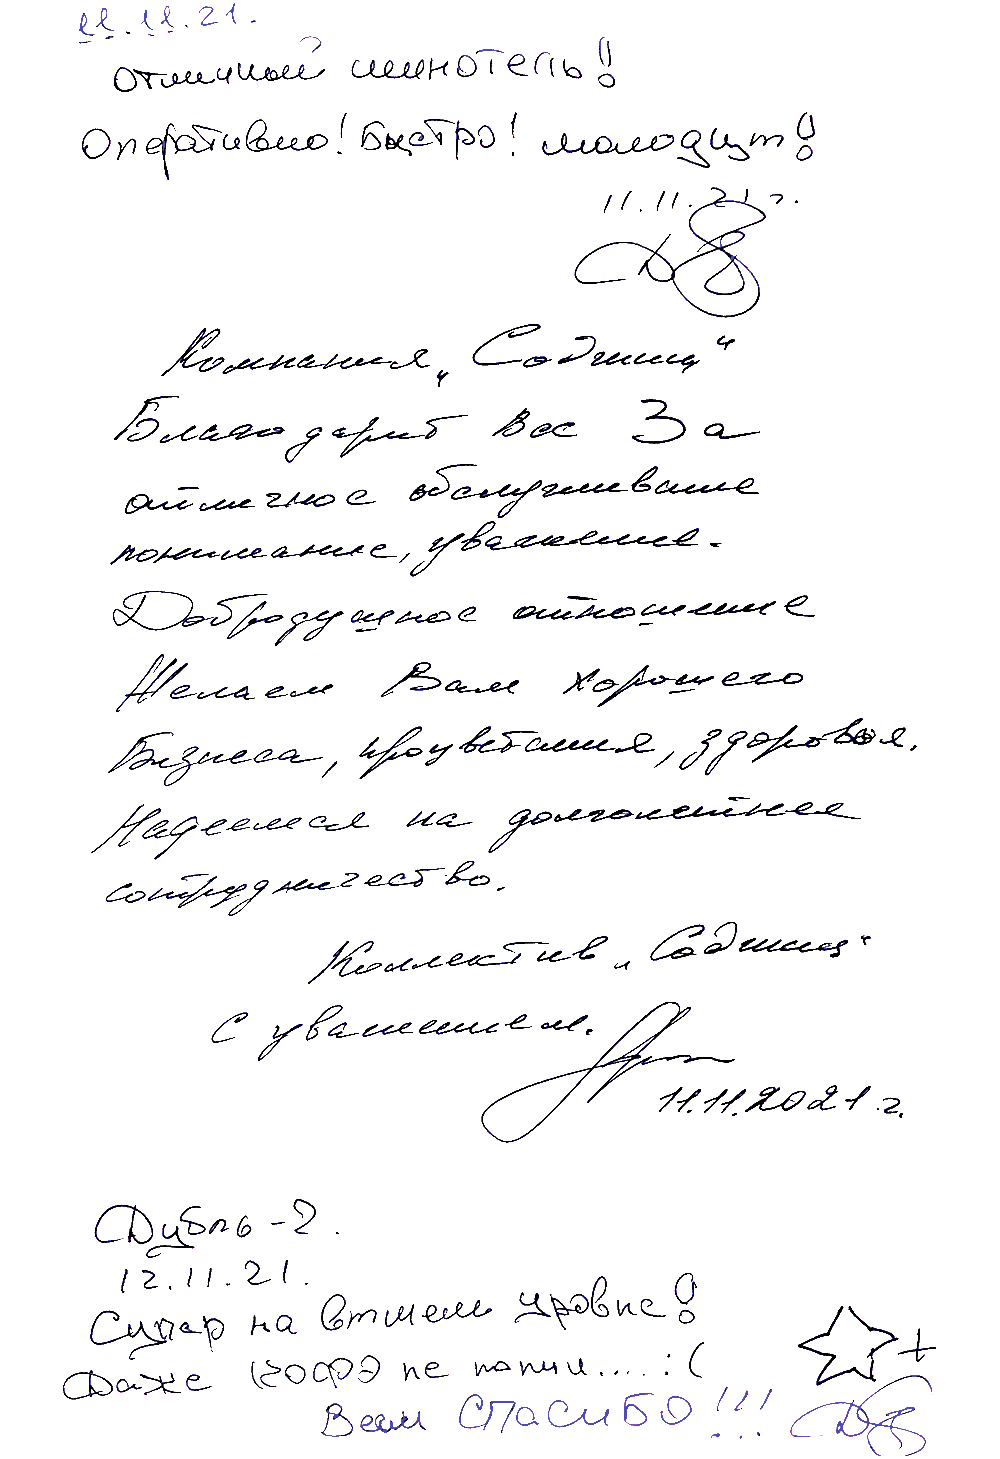 11.11.21.
Отличный шинотель!
Оперативно! Быстро! молодцы!
11.11.21 г.
Компания „Содшищ“
Благодарит Вас За
отличное обслуживание
понимание, уважение.
Добродушное отношение
Желаем Вам хорошего
Бизнеса, процветания, здоровья.
Надеемся на долголетнее
сотрудничество.
Коллектив „Содшищ“
С уважением.
11.11.2021 г.
Дубль-2.
12.11.21.
Супер на втшем уровне!
Даже кофэ не попил.... :(
+
Всем СПАСИБО!!!